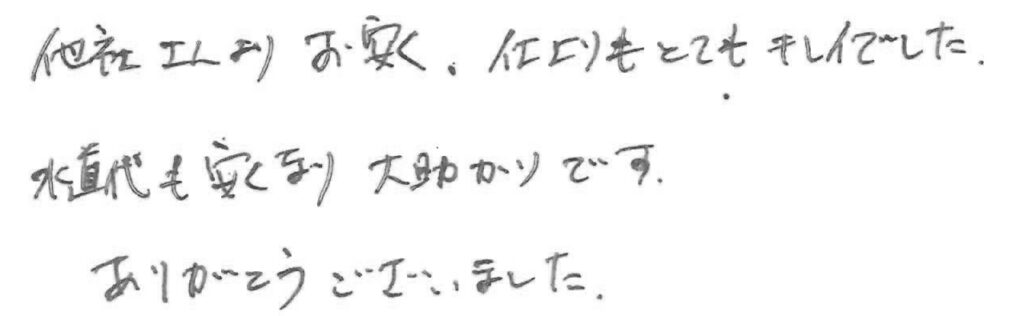 他社さんよりお安く、仕上りもとてもキレイでした.
水道代も安くなり大助かりです.
ありがとうございました.